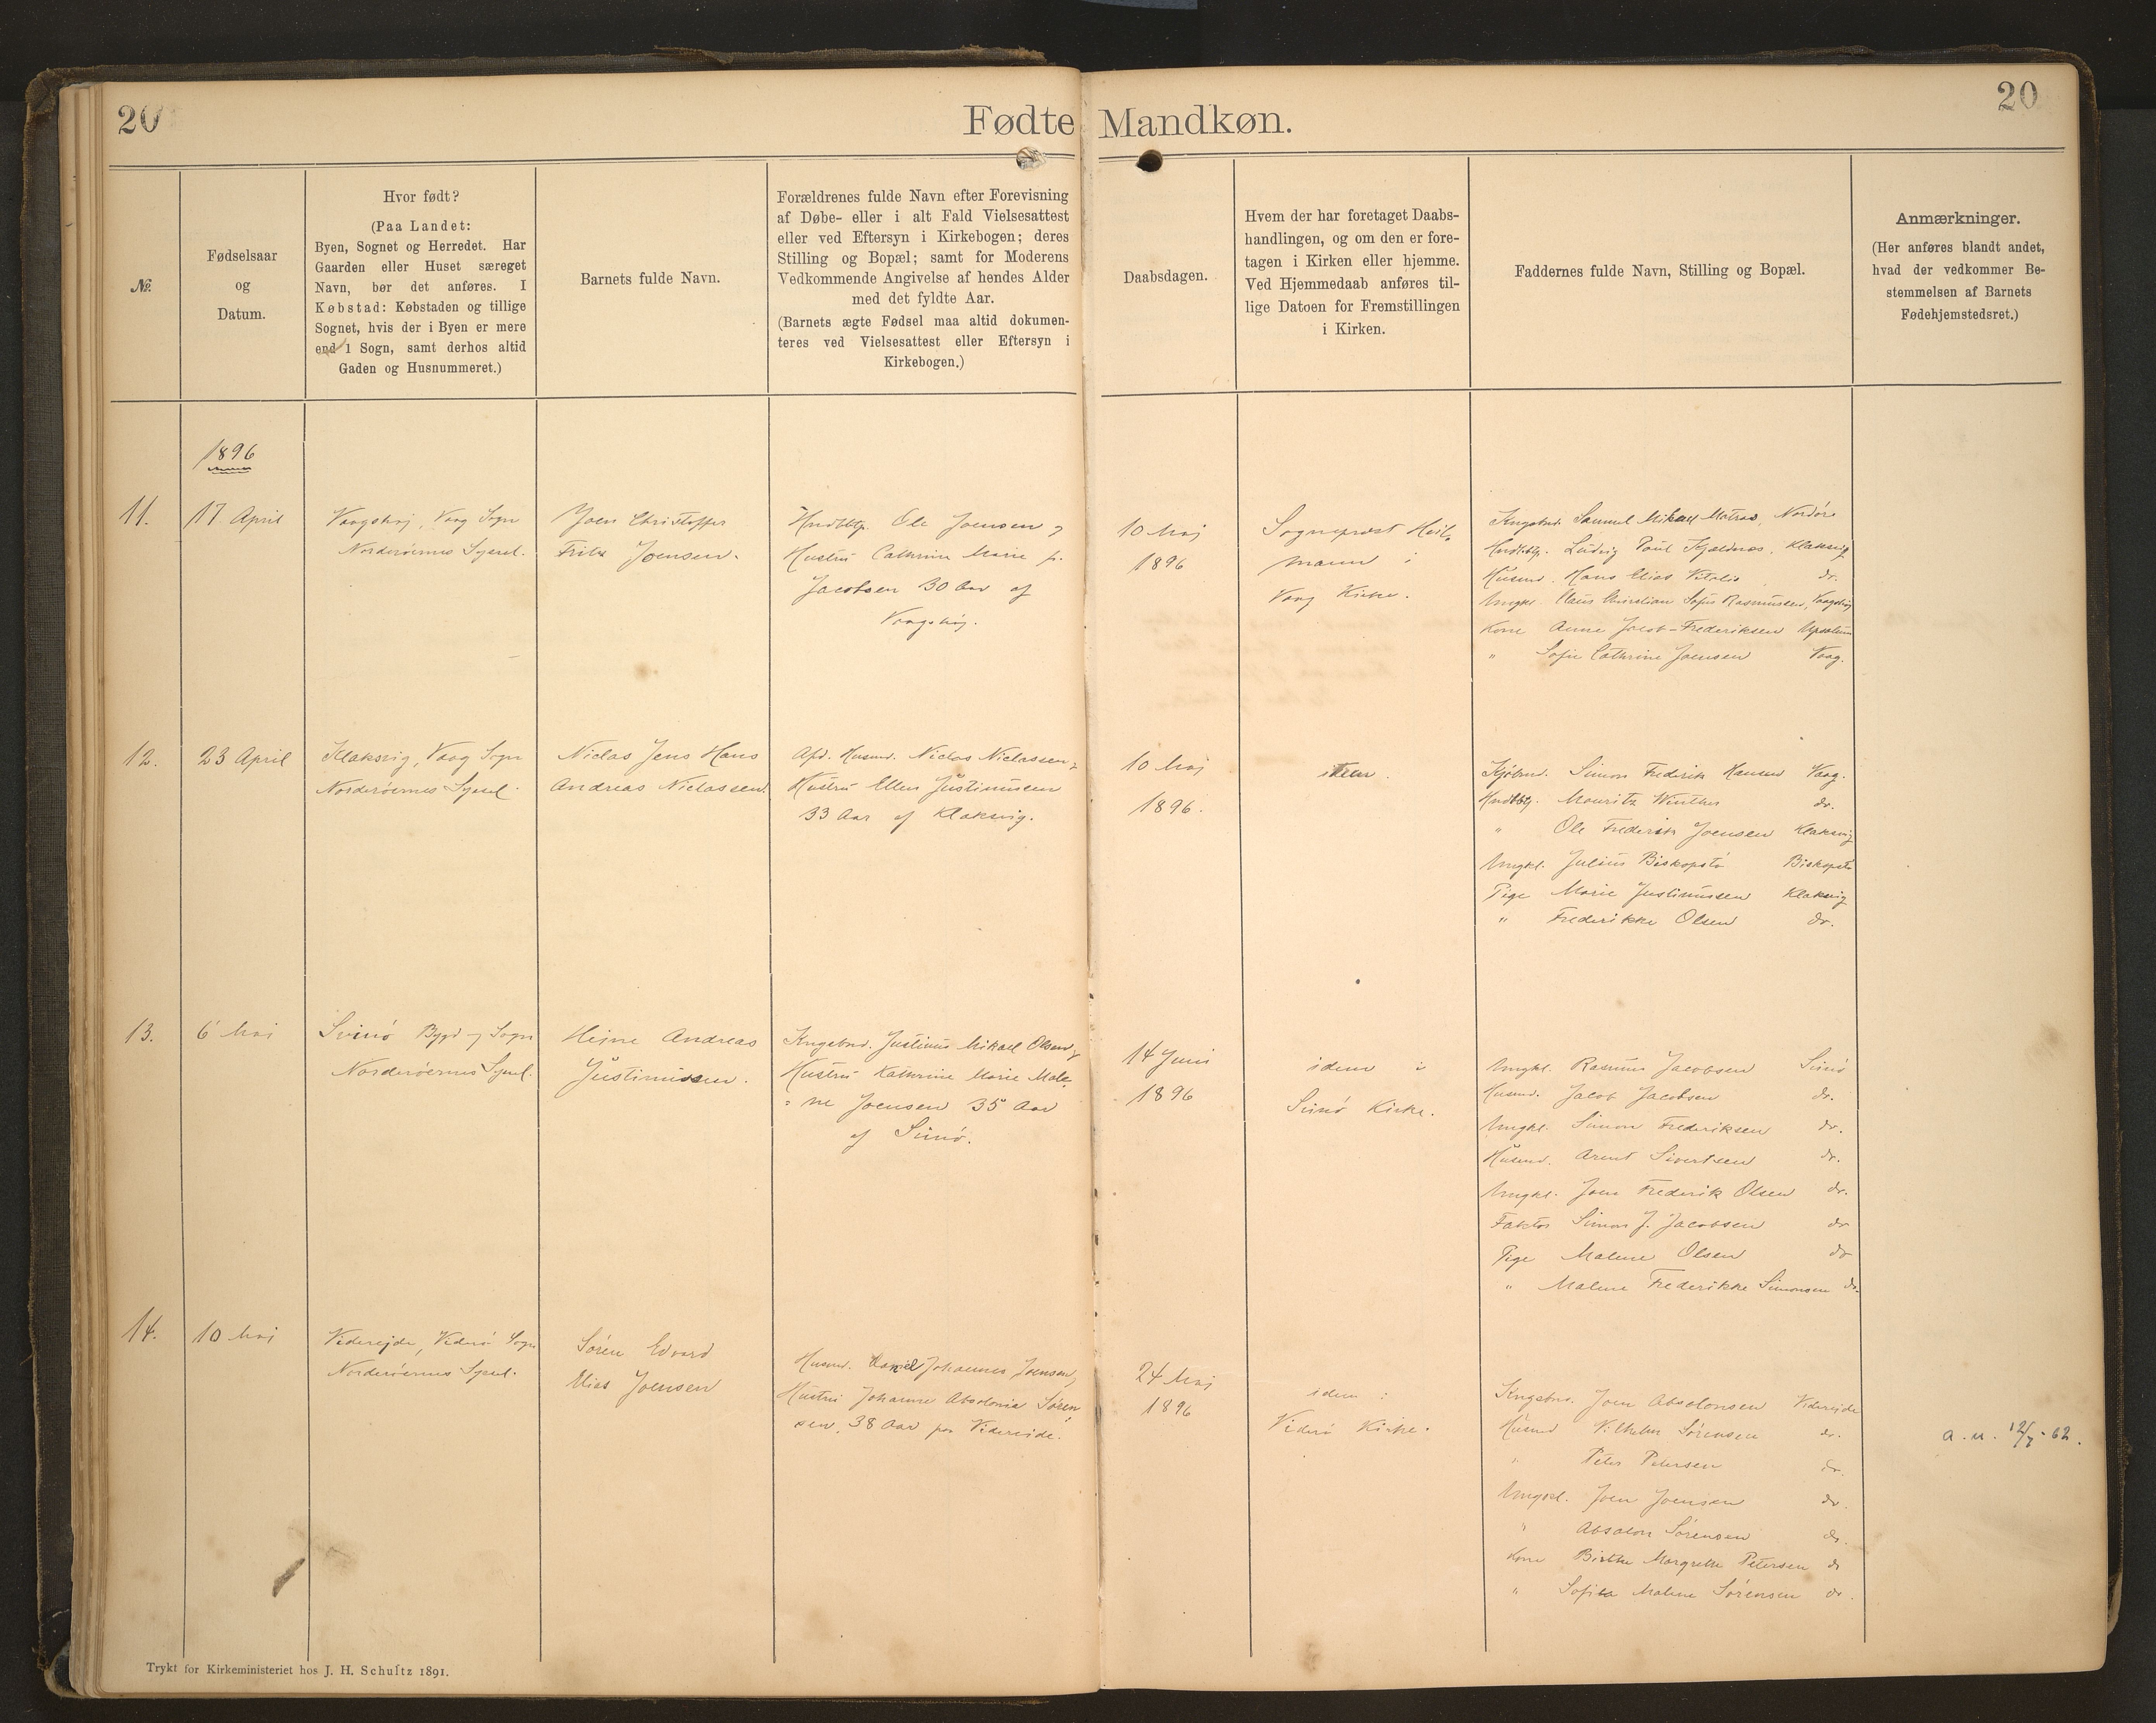 20
Fødte Mandkøn.
20
№.
Fødselsaar
og
Datum.
Hvor født?
(Paa Landet:
Byen, Sognet og Herredet. Har
Gaarden eller Huset særeget
Navn, bør det anføres. I
Købstad: Købstaden og tillige
Sognet, hvis der i Byen er mere
end 1 Sogn, samt derhos altid
Gaden og Husnummeret.)
Barnets fulde Navn.
Forældrenes fulde Navn efter Forevisning
af Døbe- eller i alt Fald Vielsesattest
eller ved Eftersyn i Kirkebogen; deres
Stilling og Bopæl; samt for Moderens
Vedkommende Angivelse af hendes Alder
med det fyldte Aar.
(Barnets ægte Fødsel maa altid dokumen-
teres ved Vielsesattest eller Eftersyn i
Kirkebogen.)
Daabsdagen.
Hvem der har foretaget Daabs-
handlingen, og om den er fore-
tagen i Kirken eller hjemme.
Ved Hjemmedaab anføres til-
lige Datoen for Fremstillingen
i Kirken.
Faddernes fulde Navn, Stilling og Bopæl.
Anmærkninger.
(Her anføres blandt andet,
hvad der vedkommer Be-
stemmelsen af Barnets
Fødehjemstedsret.)
1896
11.
17 April
Vaagshøj, Vaag Sogn
Norderøernes Syssel.
Joen Christoffer
Fritz Joensen.
Hndsbtj. Ole Joensen og
Hustru Cathrine Marie f.
Jacobsen 30 Aar af
Vaagshøj.
10 Maj
1896
Sognepræst Heil-
mann i
Vaag Kirke.
Kngsbnd. Samuel Mikael Matras, Nordøre
Hndsbtj. Ludvig Poul Kjældnæs, Klaksvig
Husmd. Hans Elias Vitalis do.
Ungkl. Claus Christian Sofus Rasmussen, Vaagshøj
Kone Anne Jacob-Frederiksen Upsalum
" Sofie Cathrine Joensen Vaag.
12.
23 April
Klaksvig, Vaag Sogn
Norderøernes Syssel.
Niclas Jens Hans
Andreas Niclassen.
Afd. Husmd. Niclas Niclassen,
Hustru Ellen Justinussen
33 Aar af Klaksvig.
10 Maj
1896.
idem.
Kjøbmd. Simon Frederik Hansen Vaag.
Hndsbtj. Mouritz Winther do.
" Ole Frederik Joensen Klaksvig
Ungkl. Julius Biskopstø Biskopstø
Pige Marie Justinussen Klaksvig
" Frederikke Olsen do.
13.
6 Maj
Svinø Bygd og Sogn
Norderøernes Syssel.
Hejne Andreas
Justinussen.
Kngsbnd. Justinus Mikael Olsen og
Hustru Kathrine Marie Male-
ne Joensen 35 Aar
af Svinø.
14 Juni
1896
idem i
Svinø Kirke.
Ungkl. Rasmus Jacobsen Svinø
Husmd. Jacob Jacobsen do.
Ungkl. Simon Frederiksen do.
Husmd. Arent Sivertsen do.
Ungkl. Joen Frederik Olsen do.
Faktor Simon J. Jacobsen do
Pige Malene Olsen do
" Malene Frederikke Simonsen do.
14.
10 Maj
Viderejde, Viderø Sogn
Norderøernes Syssel.
Søren Edvard
Elias Joensen
Husmd. Daniel Johannes Joensen,
Hustru Johanne Absolonia Søren
sen, 38 Aar paa Viderejde.
24 Maj
1896
idem i
Viderø Kirke.
Kngsbnd. Joen Absolonsen Viderejde
Husmd Vilhelm Sørensen do.
" Peter Petersen do.
Ungkl. Joen Joensen do.
" Absolon Sørensen do.
Kone Birthe Margrethe Petersen do
" Sofie Malene Sørensen do.
a. u. 12/7-62.
Trykt for Kirkeministeriet hos J. H. Schultz 1891.